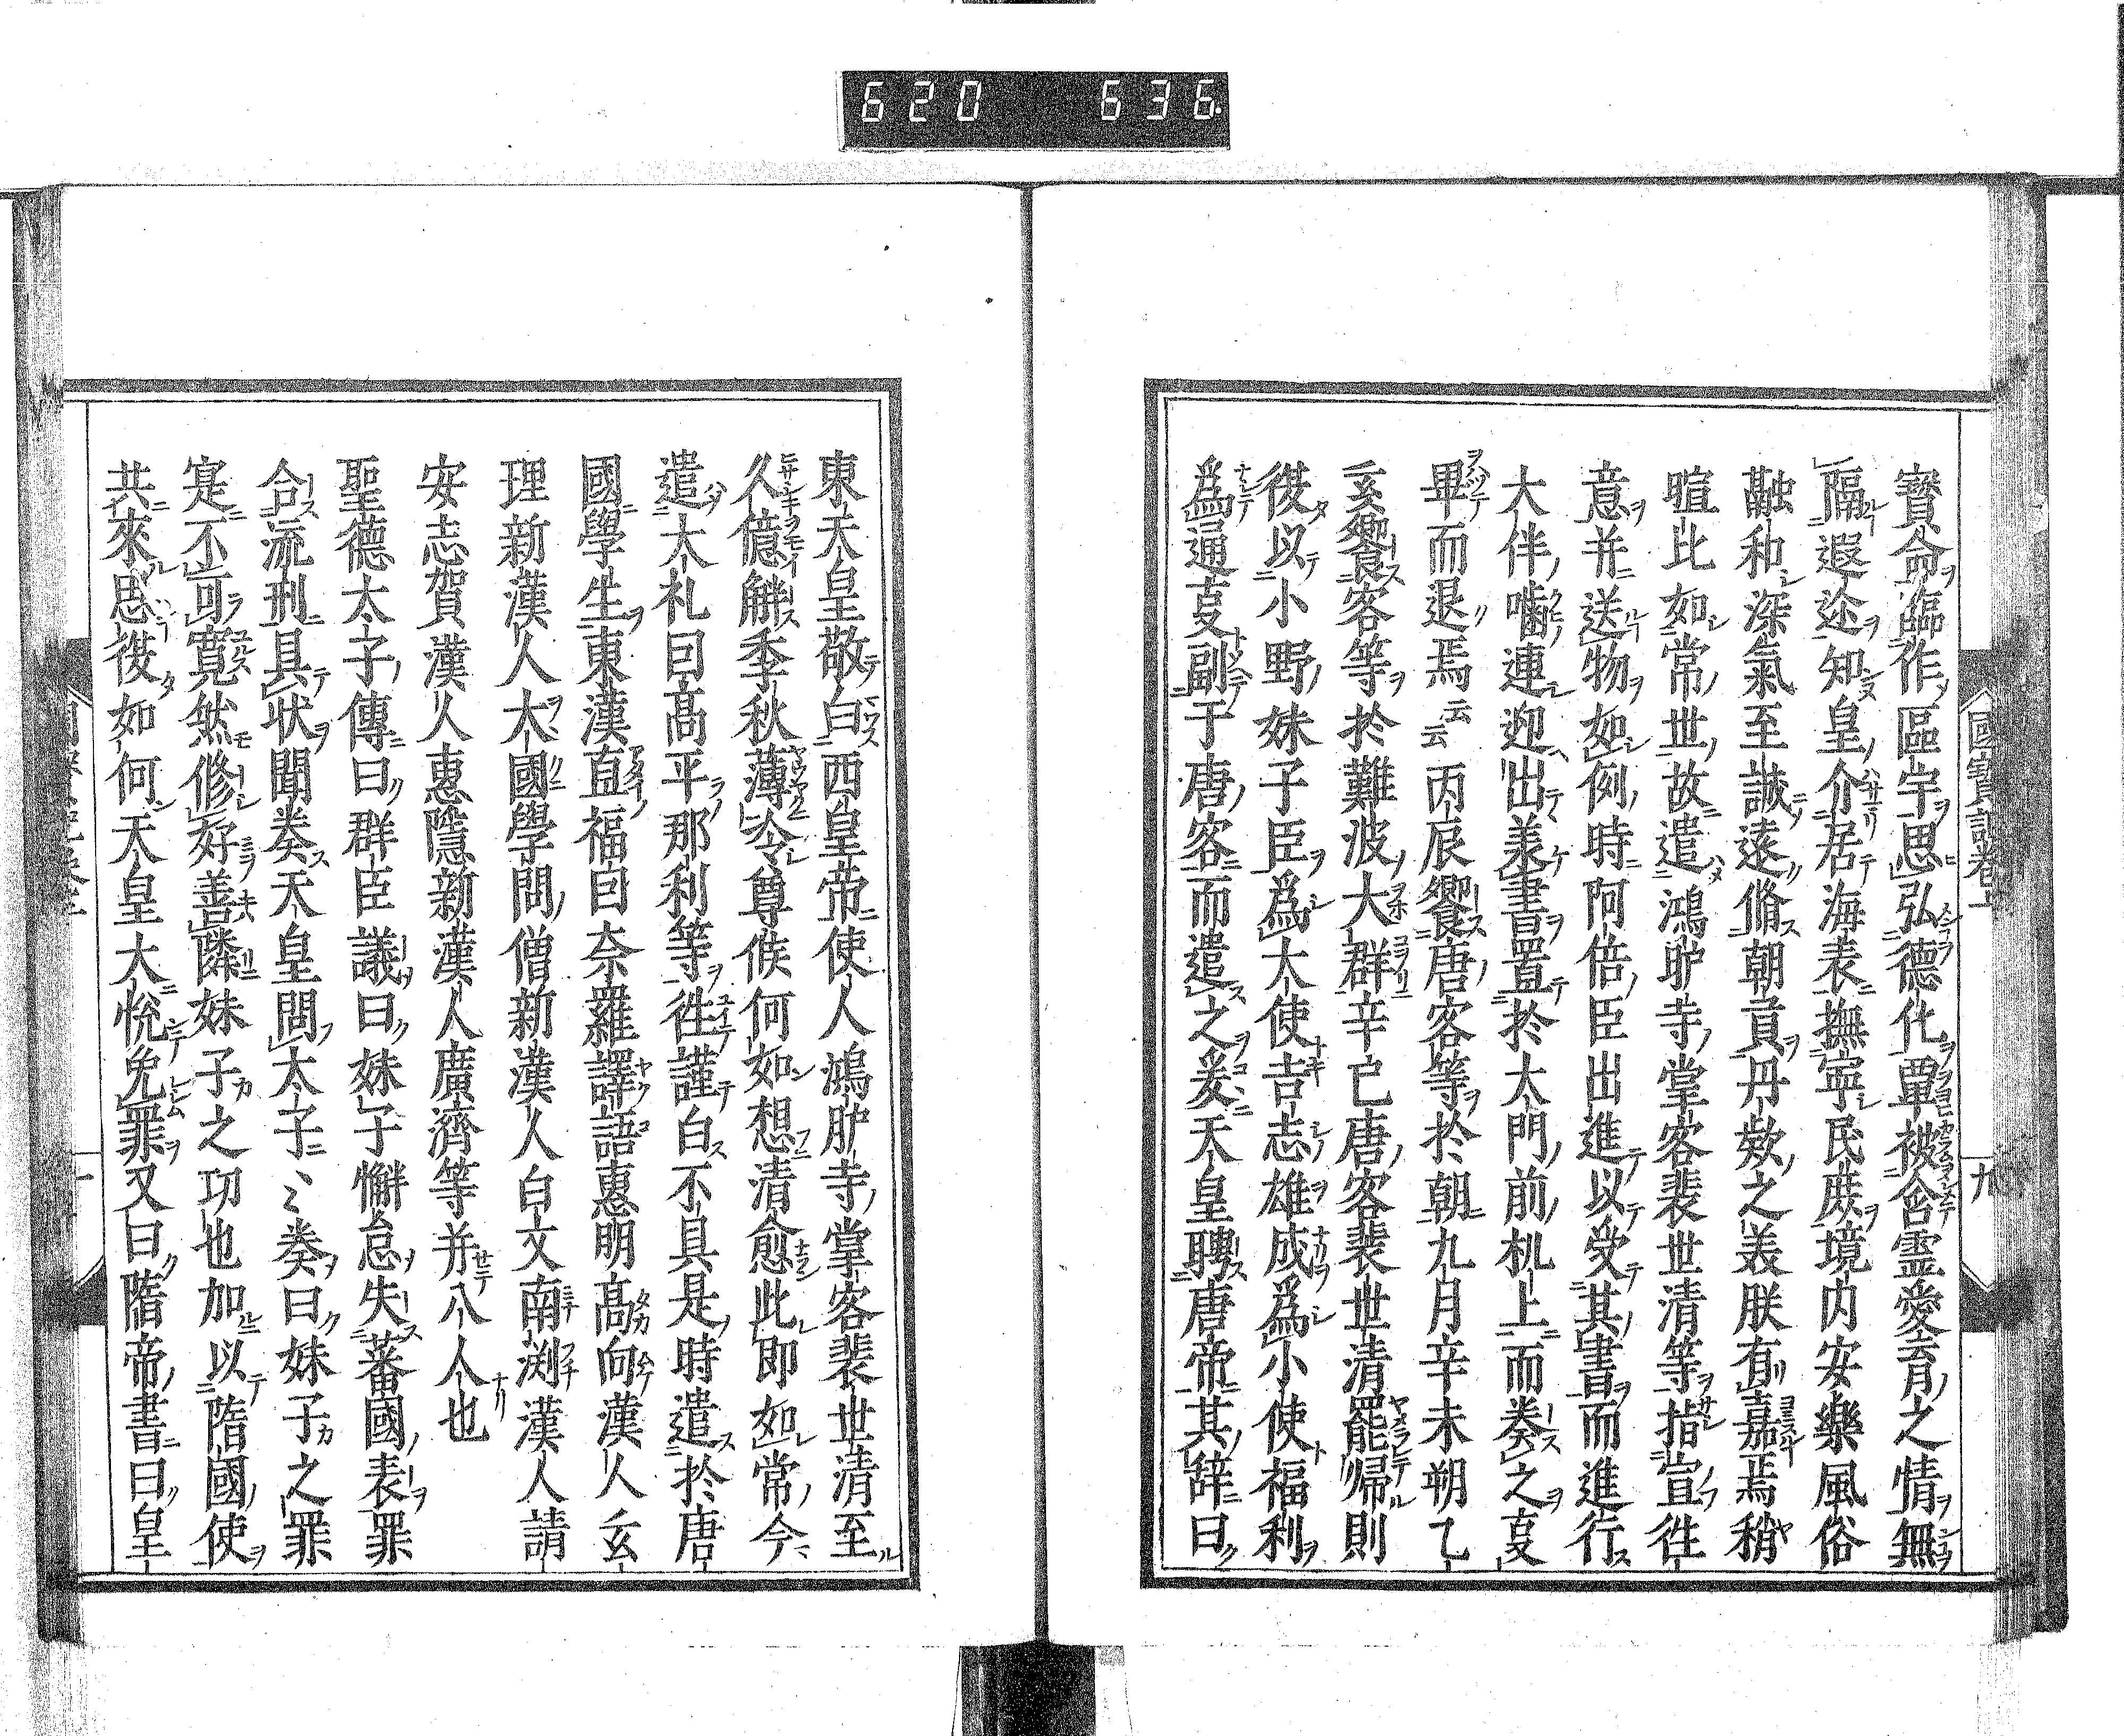 620 636
國寶記卷上 九
寶命臨作區宇思弘德化覃被含霊愛育之情無
隔遐迩知皇介居海表撫寧民蔟境内安樂風俗
融和深氣至誠遠脩朝貢丹欵之美朕有嘉焉稍
暄比如常世故遣鴻胪寺掌客裴世清等指宣徃
意并送物如例時阿倍臣出進以受其書而進行
大伴囓連迎出羕書置於太門前机上而奏之叓
畢而退焉云云丙辰饗唐客等於朝九月辛未朔乙
亥饗客等於難波大群辛已唐客裴世清罷帰則
復以小野妹子臣爲大使吉志雄成爲小使福利
爲通叓副于唐客而遣之爰天皇聘唐帝其辞曰
東天皇敬白西皇帝使人鴻胪寺掌客裴世清至
久憶觧季秋薄冷尊候何如想清愈此即如常今
遣大礼曰高平那利等徃謹白不具是時遣於唐
國學生東漢直福曰奈羅譯語惠明高向漢人玄
理新漢人大國學問僧新漢人白文南渕漢人請
安志賀漢人惠隱新漢人廣濟等并八人也
聖德太子傳曰群臣議曰妹子懈怠失蕃國表罪
合流刑具状聞奏天皇問太子〻〻奏曰妹子之罪
寔不可寬然修好善隣妹子之功也加以隋國使
共來思復如何天皇大悦免罪又曰隋帝書曰皇